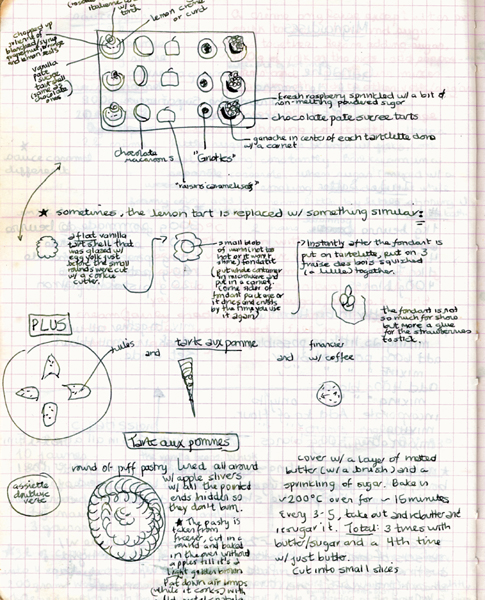 w/ a torch
lemon crème
or curd
chopped up
blanched/syrup
and lemon zests
vanilla
pate
sucrée
tart shell
(some are
chocolate
ones)
fresh raspberry sprinkled w/ a bit of
non-melting powdered sugar
chocolate pate sucree tarts
ganache in center of each tartlette done
w/ a cornet
chocolate
macarons
★ sometimes, the lemon tart is replaced w/ something similar:
a flat vanilla
tart shell that
was glazed w/
egg yolk just
before the small
rounds were cut
w/ a cookie
cutter.
small blob
of warm (not too
hot or it won't
fondant
(put whole container
in microwave and
put in a cornet.
fondant package or
it dries and crusts
by the time you use
it again)
Instantly after the fondant is
put on tartelette, put on 3
fraise des bois squished
(a little) together.
the fondant is not
so much for show
but more a glue
for the strawberries
to stick.
PLUS
tuiles
and
tarte aux pomme
and
financier
w/ coffee
Tarte aux pommes
assiette
verte
round of puff pastry lined all around
w/ apple slivers
w/ all the pointed
ends hidden so
they don't burn.
★ The pastry is
taken from
freezer, cut in a
round and baked
in the oven without
apples till it's a
light golden brown
Pat down air bumps
(while it cooks) with
cover w/ a layer of melted
butter (w/ a brush) and a
sprinkling of sugar. Bake in
~200°C oven for ~ 15 minutes
Every 3-5, take out and rebutter and
resugar it. Total: 3 times with
butter/sugar and a 4th time
w/ just butter.
Cut into small slices